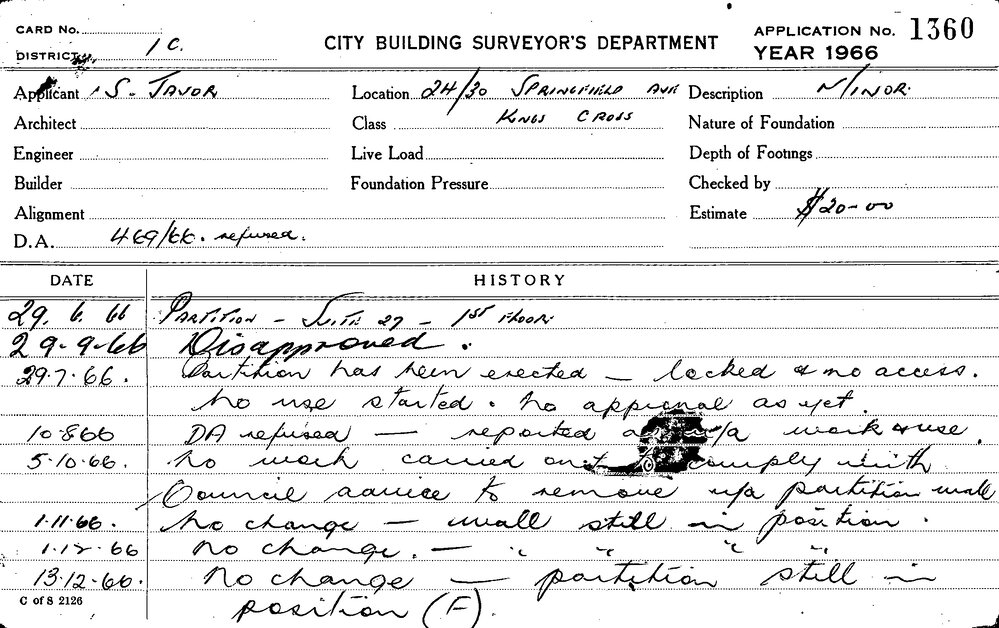 CARD No.
DISTRICT 1 C.
CITY BUILDING SURVEYOR'S DEPARTMENT
APPLICATION No. 1360
YEAR 1966
Applicant S. JAVOR
Location 24/30 SPRINGFIELD AVE
Description MINOR.
Architect
Class KINGS CROSS
Nature of Foundation
Engineer
Live Load
Depth of Footings
Builder
Foundation Pressure
Checked by
Alignment
Estimate $20-00
D.A. 469/66. refused.
DATE HISTORY
29. 6. 66 PARTITION - SUITE 27 - 1ST FLOOR
29-9-66 Disapproved.
29.7.66. Partition has been erected - locked & no access.
No use started. No approval as yet.
10.8.66 DA refused - reported u/a work & use.
5.10.66. No work carried out to comply with
Council advice to remove u/a partition wall
1.11.66. No change - wall still in position.
1.12.66 No change. - " " " "
13.12.66. No change - partition still in
position (F).
C of S 2126